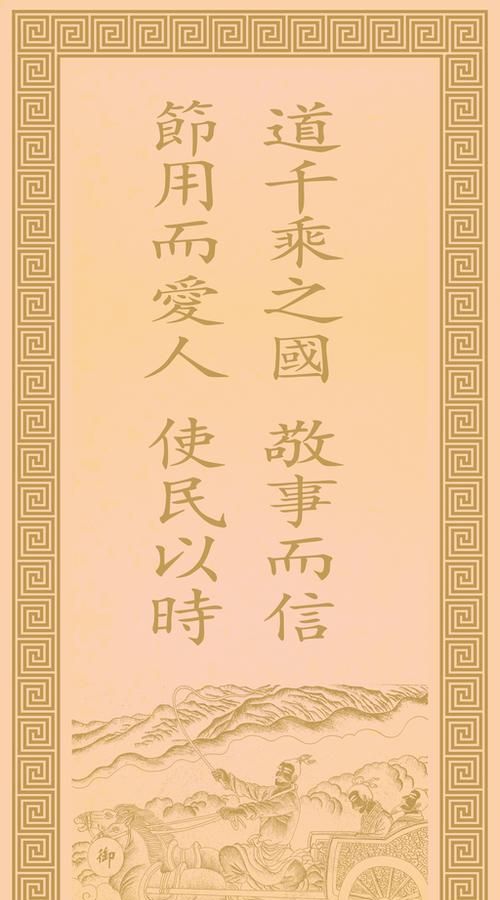 道千乘之國 敬事而信
節用而愛人 使民以時
御